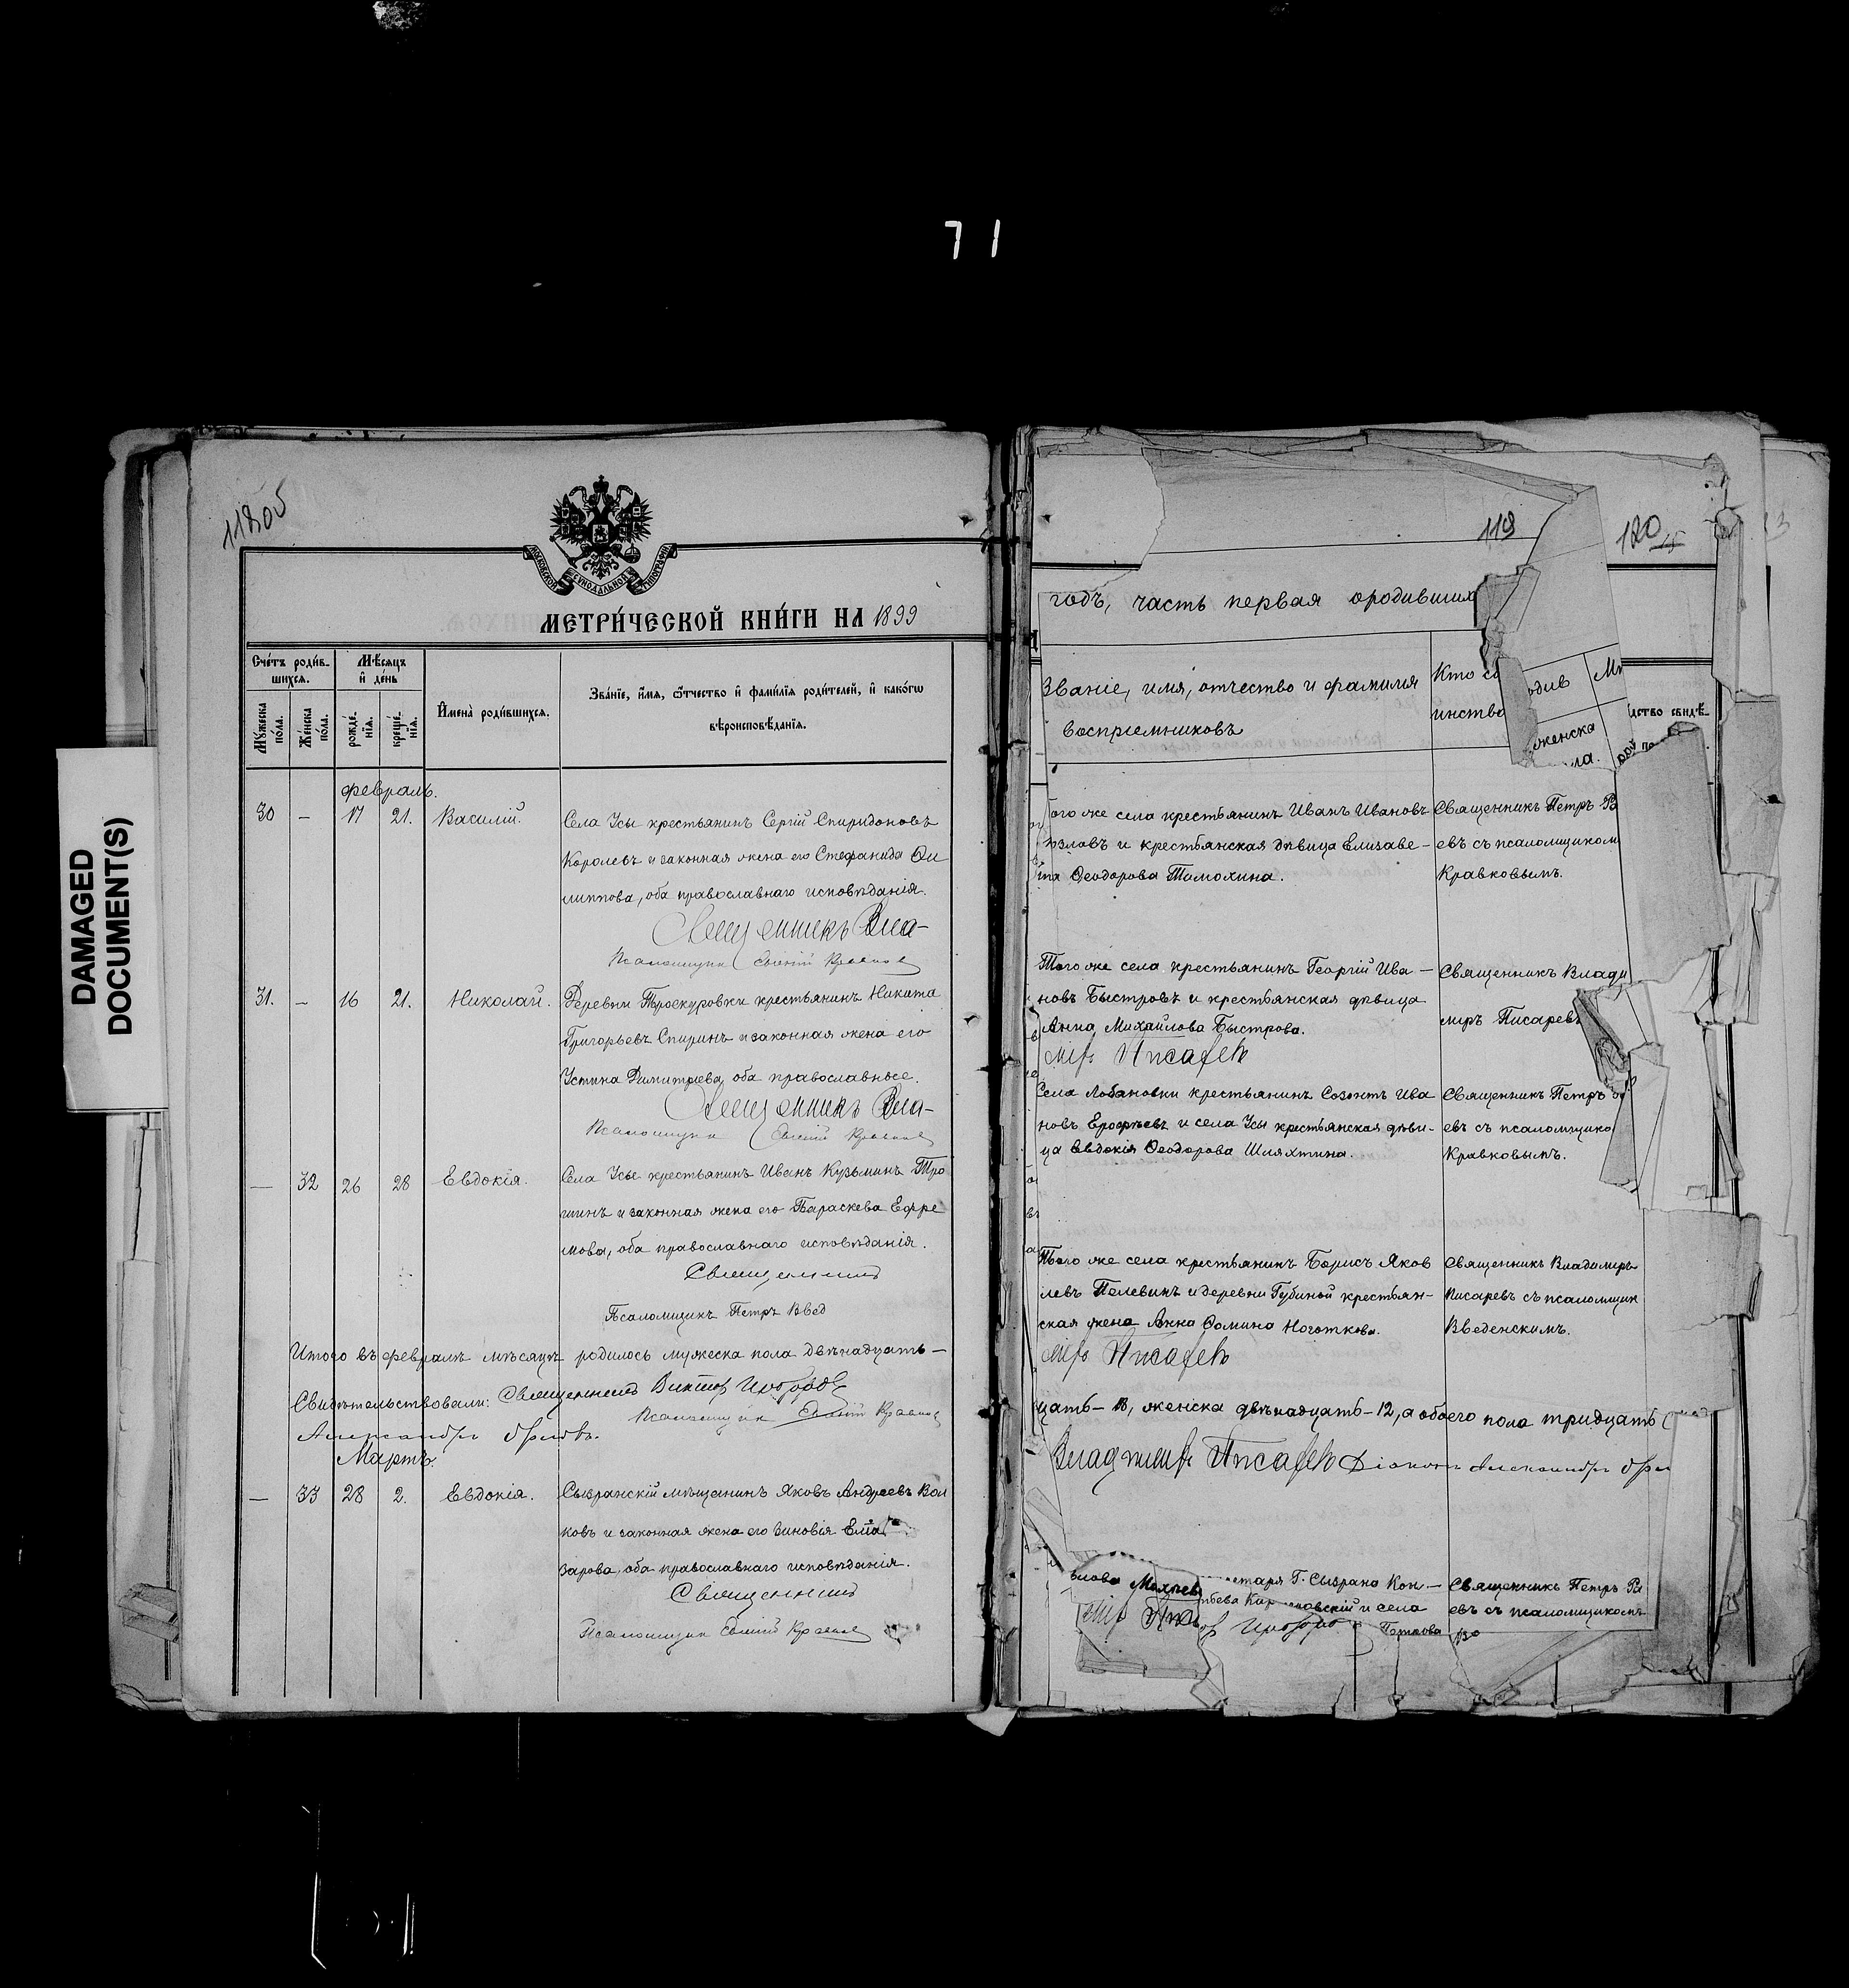 71
DAMAGED
DOCUMENT(S)
118об
МОСКОВСКОЙ СѴНОДАЛЬНОЙ ТИПОГРАФІИ
МЕТРИ́ЧЕСКОЙ КНИ́ГИ НА 1899
Сче́тъ роди́в-
шихся.
Мѣ́сяцъ
и҆ де́нь
Мꙋ́жеска
по́ла.
Же́нска
по́ла.
рожде́-
нїѧ.
креще́-
нїѧ.
И҆мена̀ роди́вшихся.
Зва́нїе, и҆́мѧ, ѻ҆́тчество и҆ фами́лїѧ роди́телей, и҆ како́гѡ
вѣроисповѣ́данїѧ.
Февраль.
30 — 17 21. Василій. Села Усы крестьянинъ Сергій Спиридоновъ
Королевъ и законная жена его Стефанида Фи
липпова, оба православнаго исповѣданія.
Священникъ Вла-
Псаломщикъ Евгений Кравков
31. — 16 21. Николай. Деревни Троекуровки крестьянинъ Никита
Григорьевъ Спиринъ и законная жена его
Устина Димитріева, оба православные.
Священникъ Вла-
Псаломщикъ Евгений Кравков
— 32 26 28 Евдокія. Села Усы крестьянинъ Иванъ Кузьминъ Тро
шинъ и законная жена его Параскева Ефре
мова, оба православнаго исповѣданія.
Священникъ
Псаломщикъ Петръ Введ
Итого въ февралѣ мѣсяцѣ родилось мужеска пола двѣнадцать —
Свидѣтельствовали: Священникъ Виктор
Псаломщикъ Евгений Кравков
Александръ Орловъ.
Мартъ.
— 33 28 2. Евдокія. Сызранскій мѣщанинъ Яковъ Андреевъ Вол
ковъ и законная жена его Зиновія
зарова, оба православнаго исповѣданія.
Священникъ
Псаломщикъ Евгений Кравков
119
120
годъ, часть первая о родивших
Званіе, имя, отчество и фамилия
воспріемниковъ
Кто со
инство
одив
женска
ла.
дство свидѣ-
ого же села крестьянинъ Иванъ Ивановъ
озловъ и крестьянская дѣвица Елизаве-
та Ѳеодорова Тимохина.
Священникъ Петръ
евъ съ псаломщиком
Кравковымъ.
Того же села крестьянинъ Георгій Ива —
новъ Быстровъ и крестьянская дѣвица
Анна Михайлова Быстрова.
Священникъ Влади
миръ Писаревъ
миръ Писаревъ
Села Лобановки крестьянинъ Созонтъ Ива
новъ Ерофѣевъ и села Усы крестьянская дѣви-
ца Евдокія Ѳеодорова Шляхтина.
Священникъ Петръ
евъ съ псаломщико
Кравковымъ.
Того же села крестьянинъ Борисъ Яков
левъ Пелевинъ и деревни Губиной крестьян-
ская жена Анна Ѳомина Ноготкова.
Священникъ Владимиръ
Писаревъ съ псаломщик
Введенскимъ.
миръ Писаревъ
цать — 18, женска двѣнадцать — 12, а обоего пола тридцать
Владимиръ Писаревъ Діаконъ Александръ Орл
ретаря Г. Сызрана Кон —
овскій и села
Петрова
Священникъ Петръ
евъ съ псаломщикомъ